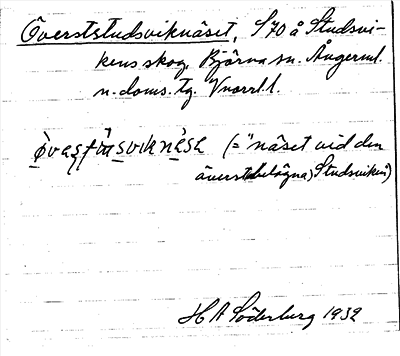 Överststudsviknäset, S70 å Studsvi-
kens skog, Björna sn. Ångerml.
n. doms. tg. Vnorrl. l.
(= "näset vid den
överst belägna, Studsviken")
H A Söderberg 1932